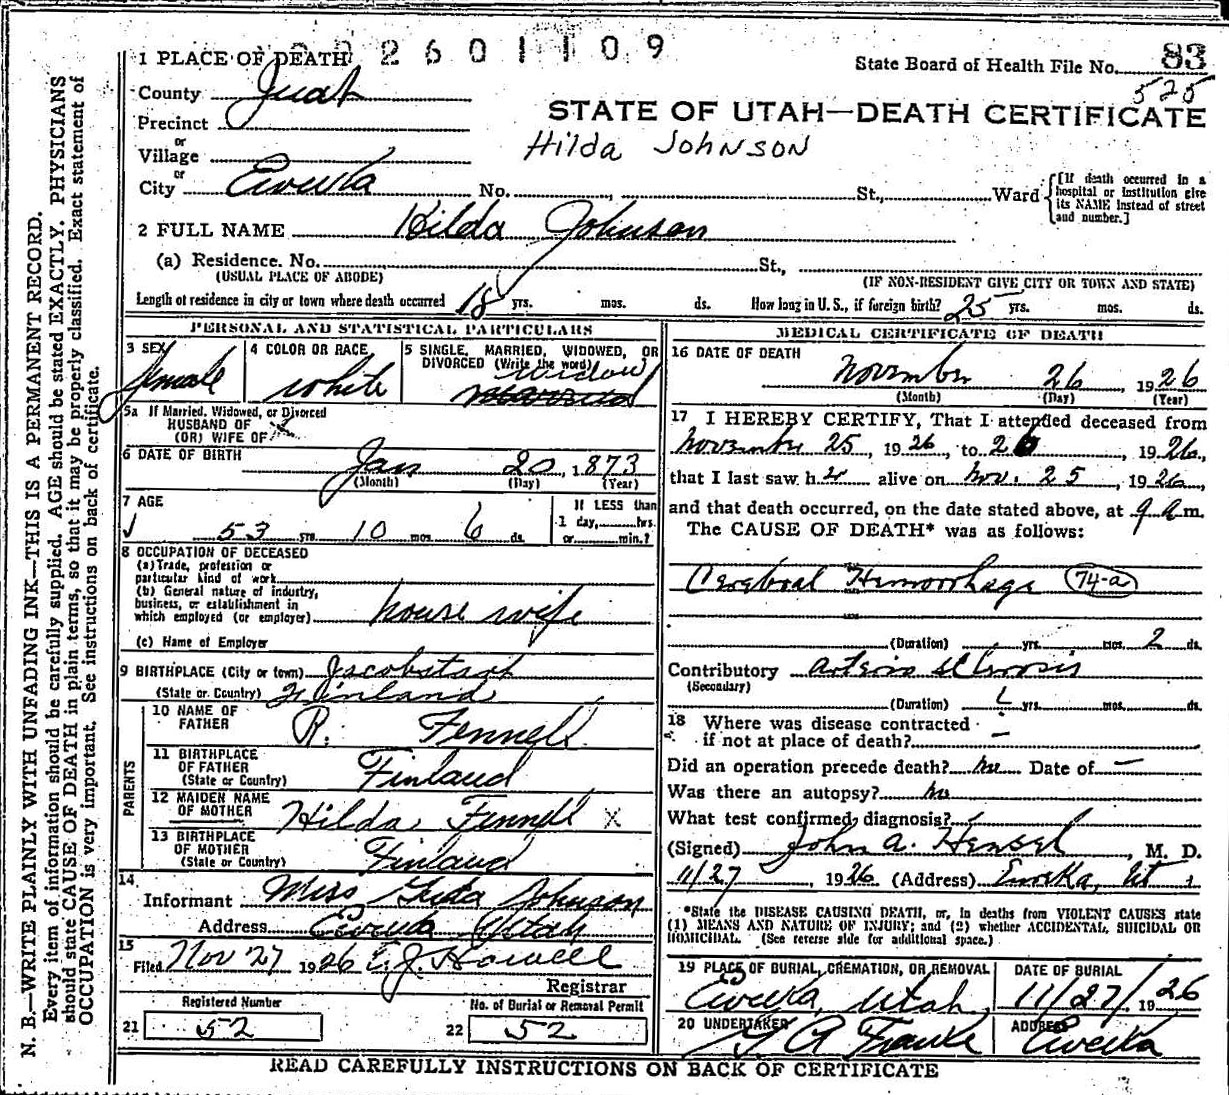 2601109
1 PLACE OF DEATH
State Board of Health File No. 83
525
County Juab
STATE OF UTAH—DEATH CERTIFICATE
Precinct
Hilda Johnson
or
Village
or
City Eureka No. St., Ward [If death occurred in a hospital or institution give its NAME instead of street and number.]
2 FULL NAME Hilda Johnson
(a) Residence. No. St.,
(USUAL PLACE OF ABODE) (IF NON-RESIDENT GIVE CITY OR TOWN AND STATE)
Length of residence in city or town where death occurred 18 yrs. mos. ds. How long in U.S., if foreign birth? 25 yrs. mos. ds.
PERSONAL AND STATISTICAL PARTICULARS
3 SEX female
4 COLOR OR RACE white
5 SINGLE, MARRIED, WIDOWED, OR DIVORCED (Write the word) widow
married
5a If Married, Widowed, or Divorced
HUSBAND OF
(OR) WIFE OF
6 DATE OF BIRTH Jan 20, 1873
(Month) (Day) (Year)
7 AGE
53 yrs. 10 mos. 6 ds.
If LESS than
1 day, hrs.
or min.?
8 OCCUPATION OF DECEASED
(a) Trade, profession or
particular kind of work
(b) General nature of industry,
business, or establishment in
which employed (or employer) house wife
(c) Name of Employer
9 BIRTHPLACE (City or town) Jacobstart
(State or Country) Finland
PARENTS
10 NAME OF
FATHER R. Fennell
11 BIRTHPLACE
OF FATHER
(State or Country) Finland
12 MAIDEN NAME
OF MOTHER Hilda Fennell X
13 BIRTHPLACE
OF MOTHER
(State or Country) Finland
14
Informant Miss Johnson
Address Eureka Utah
15
Filed Nov 27 1926 E. J. Howell
Registrar
Registered Number
21 52
No. of Burial or Removal Permit
22 52
MEDICAL CERTIFICATE OF DEATH
16 DATE OF DEATH
November 26, 1926
(Month) (Day) (Year)
17 I HEREBY CERTIFY, That I attended deceased from
November 25, 1926, to 26, 1926,
that I last saw her alive on Nov. 25, 1926,
and that death occurred, on the date stated above, at 9 a.m.
The CAUSE OF DEATH* was as follows:
Cerebral Hemorrhage 74-a
(Duration) yrs. mos. 2 ds.
Contributory arterio sclerosis
(Secondary)
(Duration) yrs. mos. ds.
18 Where was disease contracted
if not at place of death? —
Did an operation precede death? no Date of —
Was there an autopsy? no
What test confirmed diagnosis?
(Signed) John A. Hensel, M. D.
11/27, 1926 (Address) Eureka, Ut
*State the DISEASE CAUSING DEATH, or, in deaths from VIOLENT CAUSES state
(1) MEANS AND NATURE OF INJURY; and (2) whether ACCIDENTAL, SUICIDAL OR
HOMICIDAL. (See reverse side for additional space.)
19 PLACE OF BURIAL, CREMATION, OR REMOVAL
Eureka, Utah
DATE OF BURIAL
11/27/1926
20 UNDERTAKER
Franke
ADDRESS
Eureka
READ CAREFULLY INSTRUCTIONS ON BACK OF CERTIFICATE
N. B.—WRITE PLAINLY WITH UNFADING INK—THIS IS A PERMANENT RECORD.
Every item of information should be carefully supplied. AGE should be stated EXACTLY. PHYSICIANS
should state CAUSE OF DEATH in plain terms, so that it may be properly classified. Exact statement of
OCCUPATION is very important. See instructions on back of certificate.